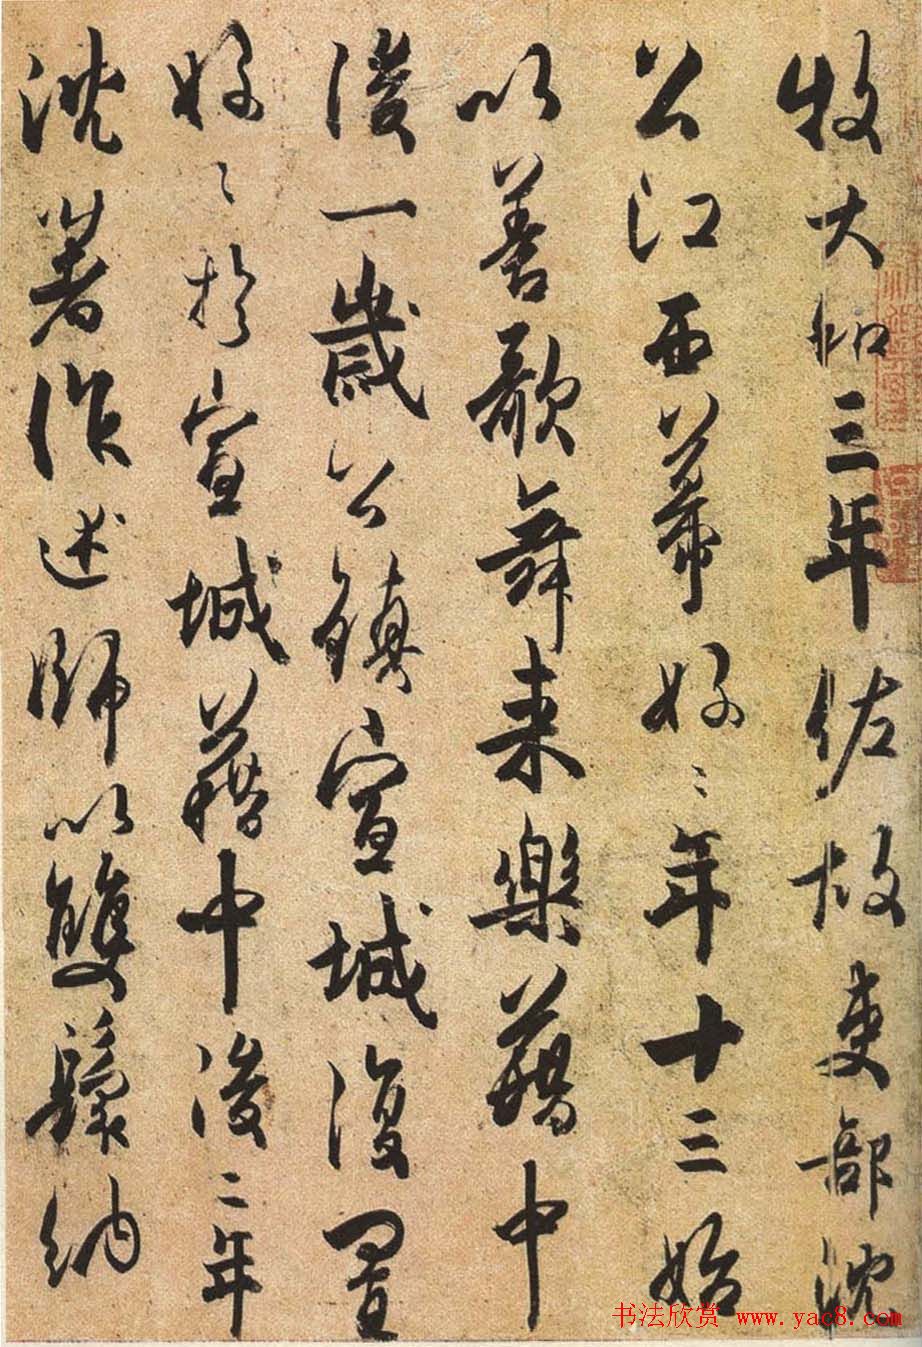 牧大和三年佐故吏部沈
公江西幕好〻年十三始
以善歌舞来樂籍中
後一歲公鎮宣城復置
好〻於宣城籍中後二年
沈著作述師以雙鬟納
书法欣赏 www.yac8.com